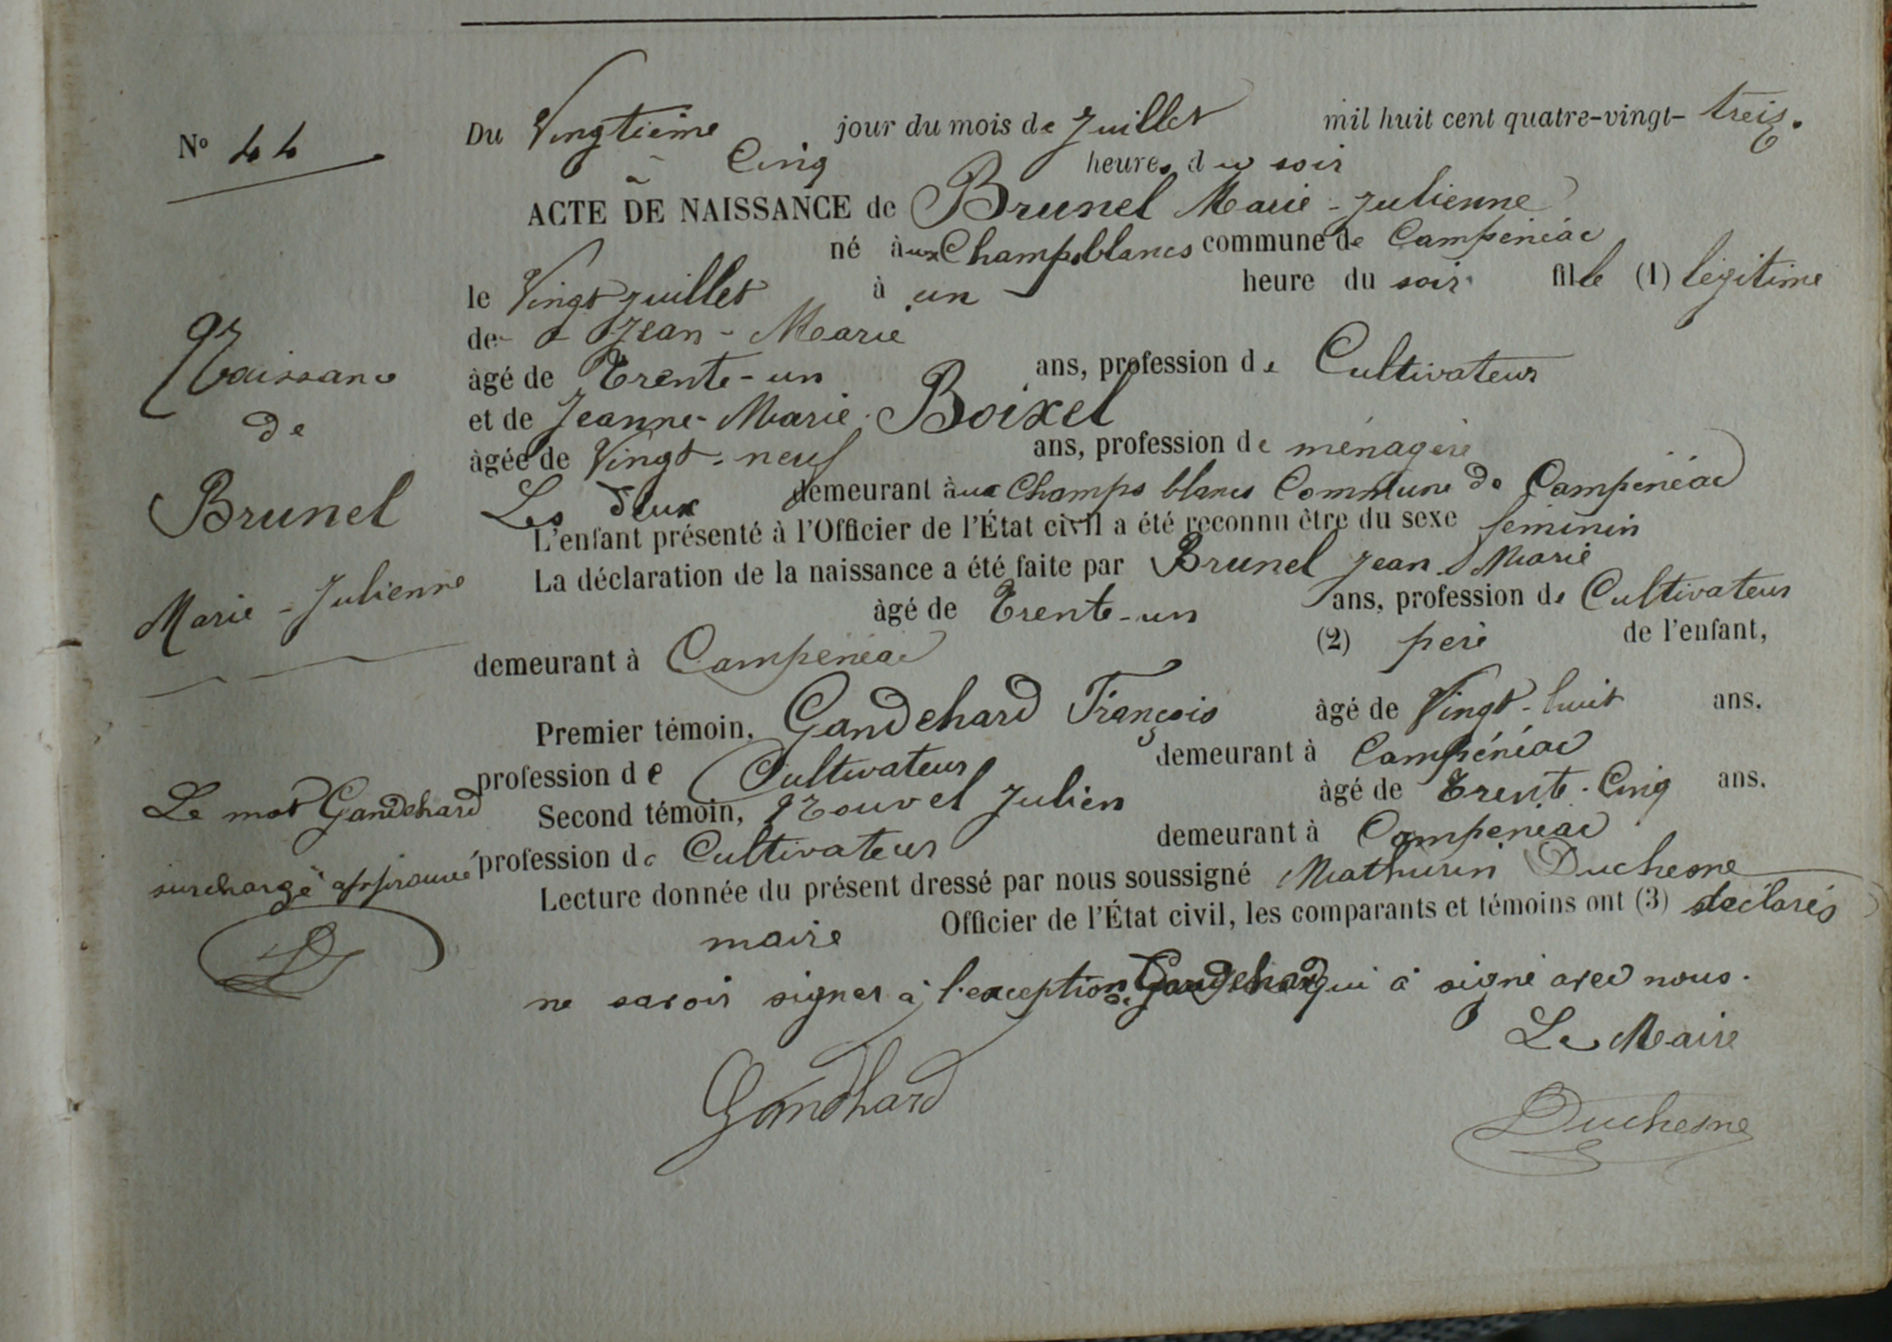 N° 44
Naissance
de
Brunel
Marie-Julienne
Le mot Gandehard
surchargé approuvé
Du Vingtième jour du mois de Juillet mil huit cent quatre-vingt-treiz.
à Cinq heures du soir
ACTE DE NAISSANCE de Brunel Marie-Julienne
né àux Champs blancs commune de Campénéac
le Vingt juillet à un heure du soir fille (1) légitime
de Jean-Marie
âgé de Trente-un ans, profession de Cultivateur
et de Jeanne-Marie Boixel
âgée de Vingt-neuf ans, profession de ménagère
Les deux demeurant àux Champs blancs Commune de Campénéac
L'enfant présenté à l'Officier de l'État civil a été reconnu être du sexe féminin
La déclaration de la naissance a été faite par Brunel Jean Marie
âgé de Trente-un ans, profession de Cultivateur
demeurant à Campénéac (2) père de l'enfant,
Premier témoin, Gandehard François âgé de Vingt-huit ans.
profession de Cultivateur demeurant à Campénéac
Second témoin, Nouvel Julien âgé de Trente-Cinq ans.
profession de Cultivateur demeurant à Campénéac
Lecture donnée du présent dressé par nous soussigné Mathurin Duchesne
maire Officier de l'État civil, les comparants et témoins ont (3) déclarés
ne savoir signer à l'exception de Gandehard qui à signé avec nous.
Le Maire
Gandhard
Duchesne